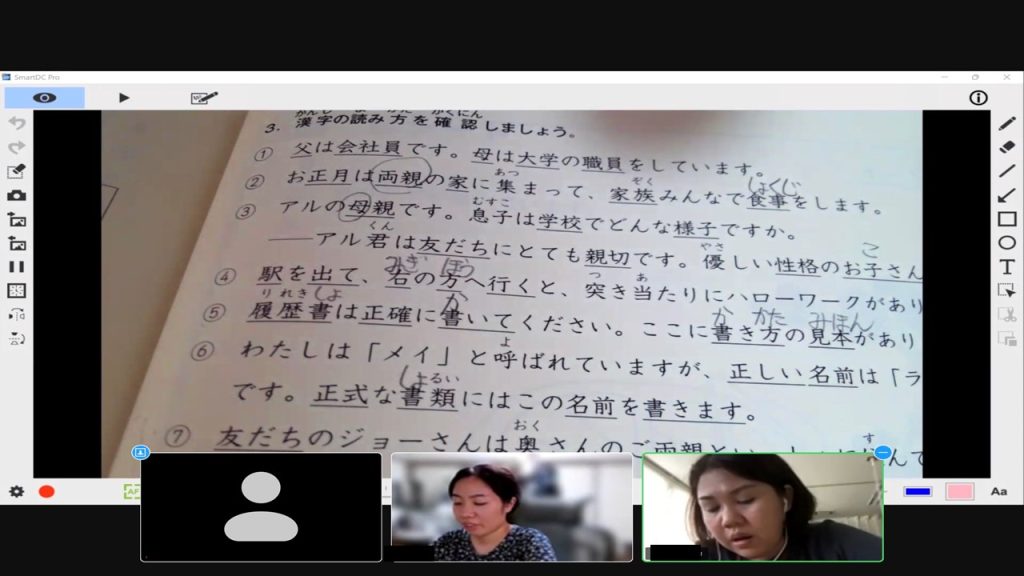 SmartDC Pro
かんじ よ かた かくにん
3. 漢字の読み方を確認しましょう。
① 父は会社員です。母は大学の職員をしています。
あつ ぞく しょくじ
② お正月は両親の家に集まって、家族みんなで食事をします。
むすこ
③ アルの母親です。息子は学校でどんな様子ですか。
くん やさ こ
――アル君は友だちにとても親切です。優しい性格のお子さん
みぎ ほう つ あ
④ 駅を出て、右の方へ行くと、突き当たりにハローワークがあり
りれきしょ か か かた みほん
⑤ 履歴書は正確に書いてください。ここに書き方の見本があり
よ
⑥ わたしは「メイ」と呼ばれていますが、正しい名前は「ラ
しょるい
です。正式な書類にはこの名前を書きます。
おく す
⑦ 友だちのジョーさんは奥さんのご両親と
AF
T
Aa